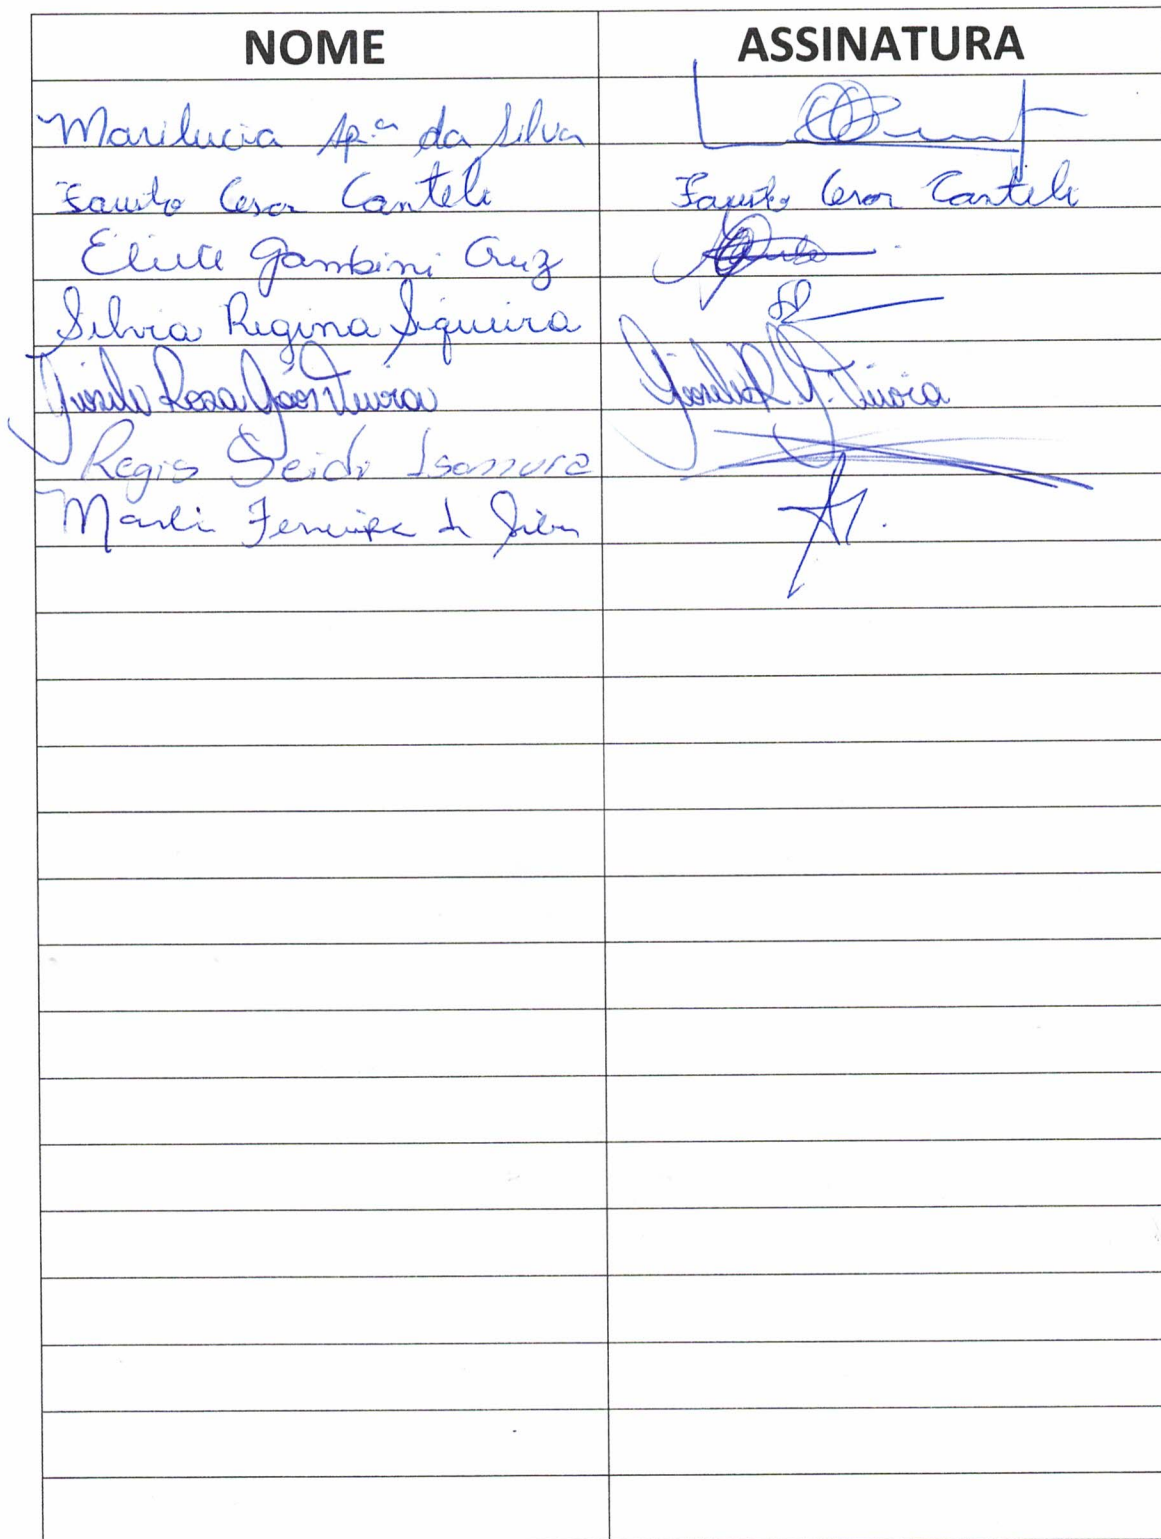 NOME ASSINATURA
Marilucia Ap.ª da Silva
Fausto Cesar Canteli Fausto Cesar Canteli
Gambini Cruz
Silvia Regina Siqueira
Gisele Rosa Vieira Vieira
Regis Seidi Isamura
Marli Ferreira da Silva